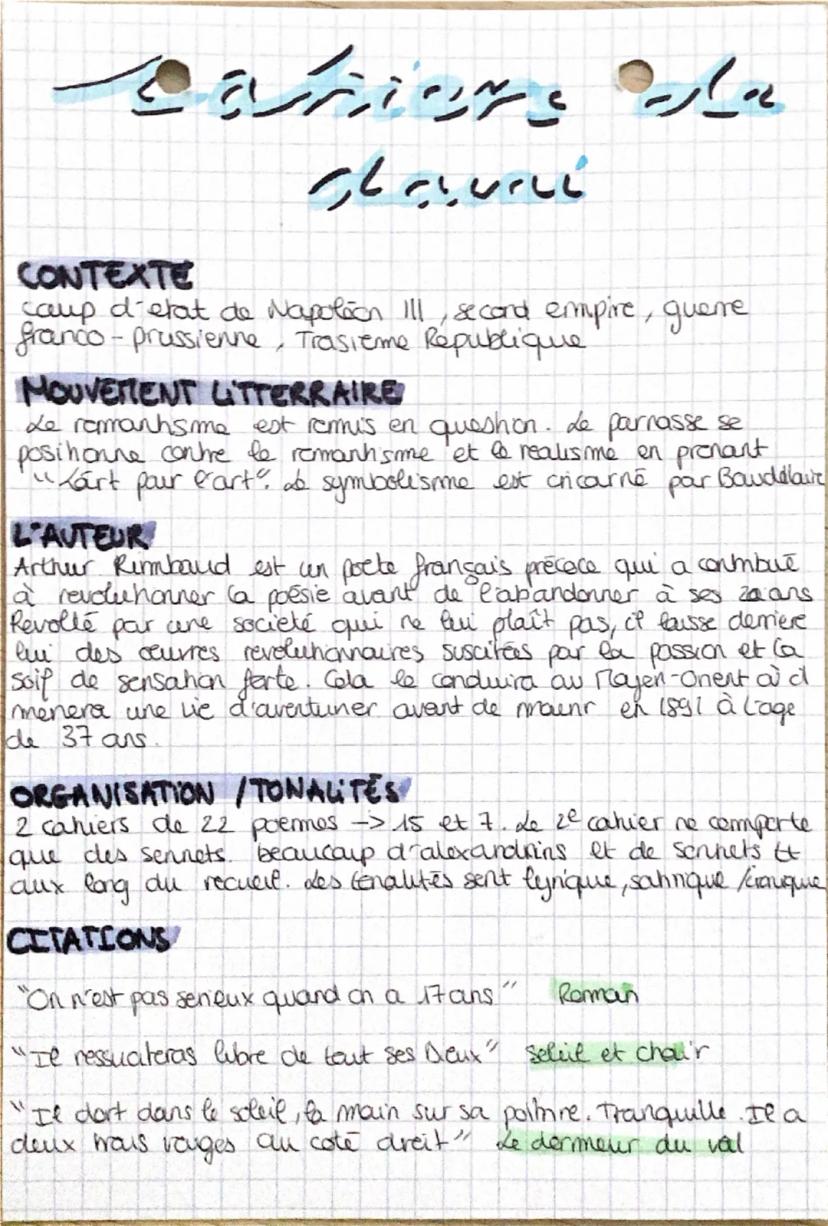 CONTEXTE
coup d'etat de Napoléon III, second empire, guerre
franco-prussienne, Troisieme République
MOUVEMENT LITTERRAIRE
Le romantisme est remis en question. Le parnasse se
positionne contre le romantisme et le realisme en prenant
"L'art pour l'art". Le symbolisme est incarné par Baudelaire
L'AUTEUR
Arthur Rimbaud est un poete français précoce qui a contribué
à revolutionner la poésie avant de l'abandonner à ses 20 ans
Révolté par une societé qui ne lui plaît pas, il laisse derriere
lui des œuvres revolutionnaires suscitées par la passion et la
soif de sensation forte. Cela le conduira au Moyen-Orient où il
menera une vie d'aventurier avant de mourir en 1891 à l'age
de 37 ans.
ORGANISATION / TONALITÉS
2 cahiers de 22 poemes -> 15 et 7. Le 2e cahier ne comporte
que des sonnets. beaucoup d'alexandrins et de sonnets tt
aux long du recueil. Les tonalités sont lyrique, satirique / ironique
CITATIONS
"On n'est pas serieux quand on a 17 ans" Roman
"Il ressuciteras libre de tout ses Dieux" Soleil et chair
"Il dort dans le soleil, la main sur sa poitrine. Tranquille. Il a
deux trous rouges au coté droit" Le dormeur du val